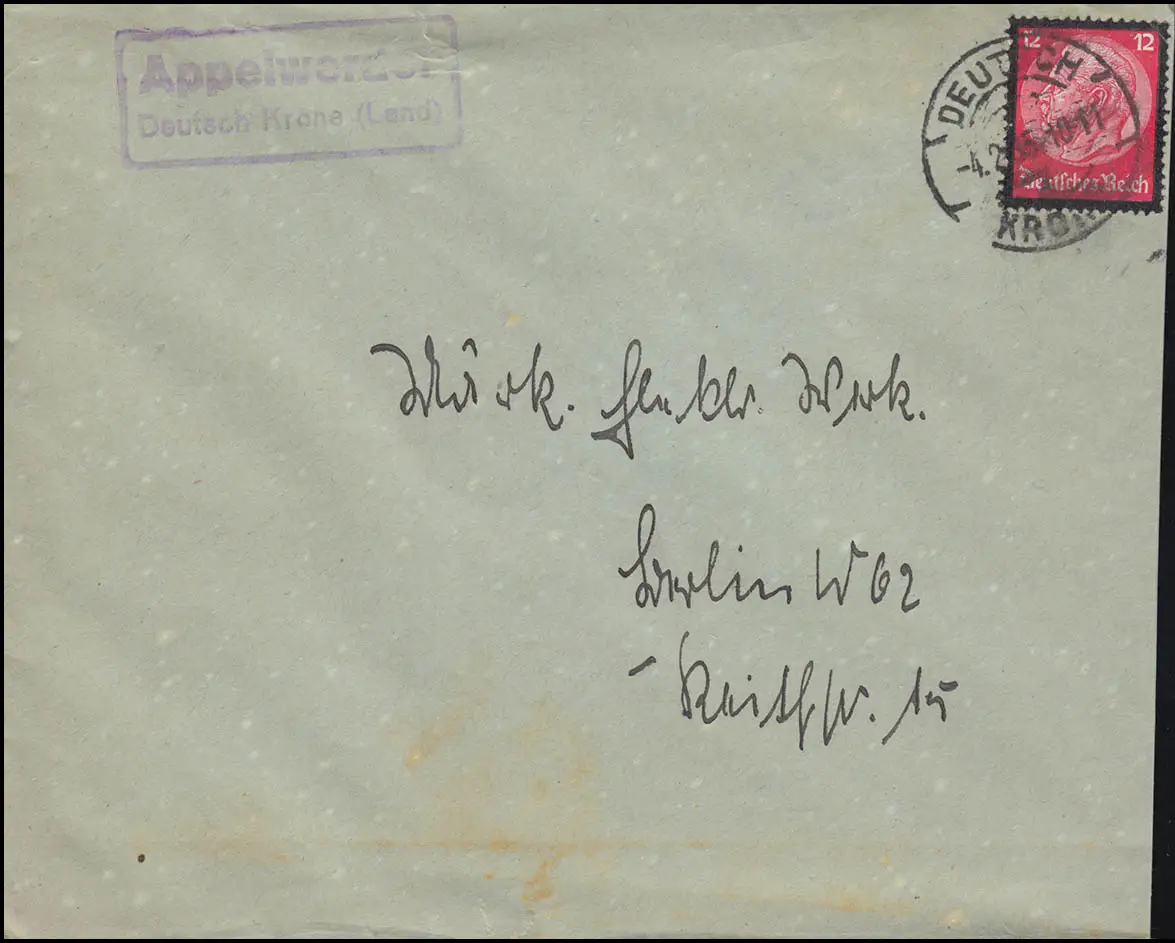 Appelwerder
Deutsch Krone (Land)
12 12
DEUTSCH
-4.2. 10-11
Deutsches Reich
KRONE
Märk. Elektr. Werk.
Berlin W 62